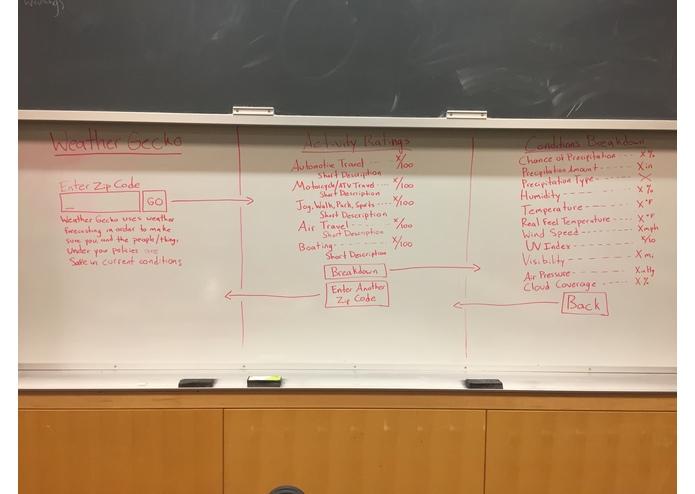 Weather Gecko
Enter Zip Code
GO
Weather Gecko uses weather
forecasting in order to make
sure you, and the people/things
Under you policies are
Safe in current conditions
Activity Ratings
Automotive Travel --- X/100
Short Description
Motorcycle/ATV Travel --- X/100
Short Description
Jog, Walk, Park, Sports --- X/100
Short Description
Air Travel ------ X/100
Short Description
Boating --------- X/100
Short Description
Breakdown
Enter Another
Zip Code
Conditions Breakdown
Chance of Precipitation --- X %
Precipitation Amount --- X in
Precipitation Type --- X
Humidity ------ X %
Temperature ------ X °F
Real Feel Temperature --- X °F
Wind Speed ------ X mph
UV Index ------ X/10
Visibility ------ X mi
Air Pressure ------ X inHg
Cloud Coverage ------ X %
Back